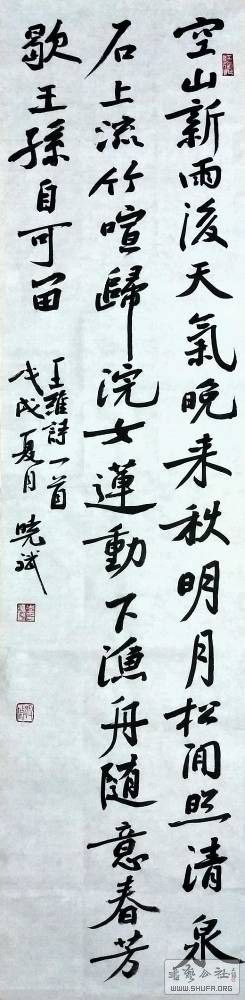 空山新雨後天氣晚来秋明月松间照清泉
石上流竹喧歸浣女蓮動下漁舟随意春芳
歇王孫自可留
王維詩一首
戊戌夏月 曉斌
WWW.SHUFA.ORG